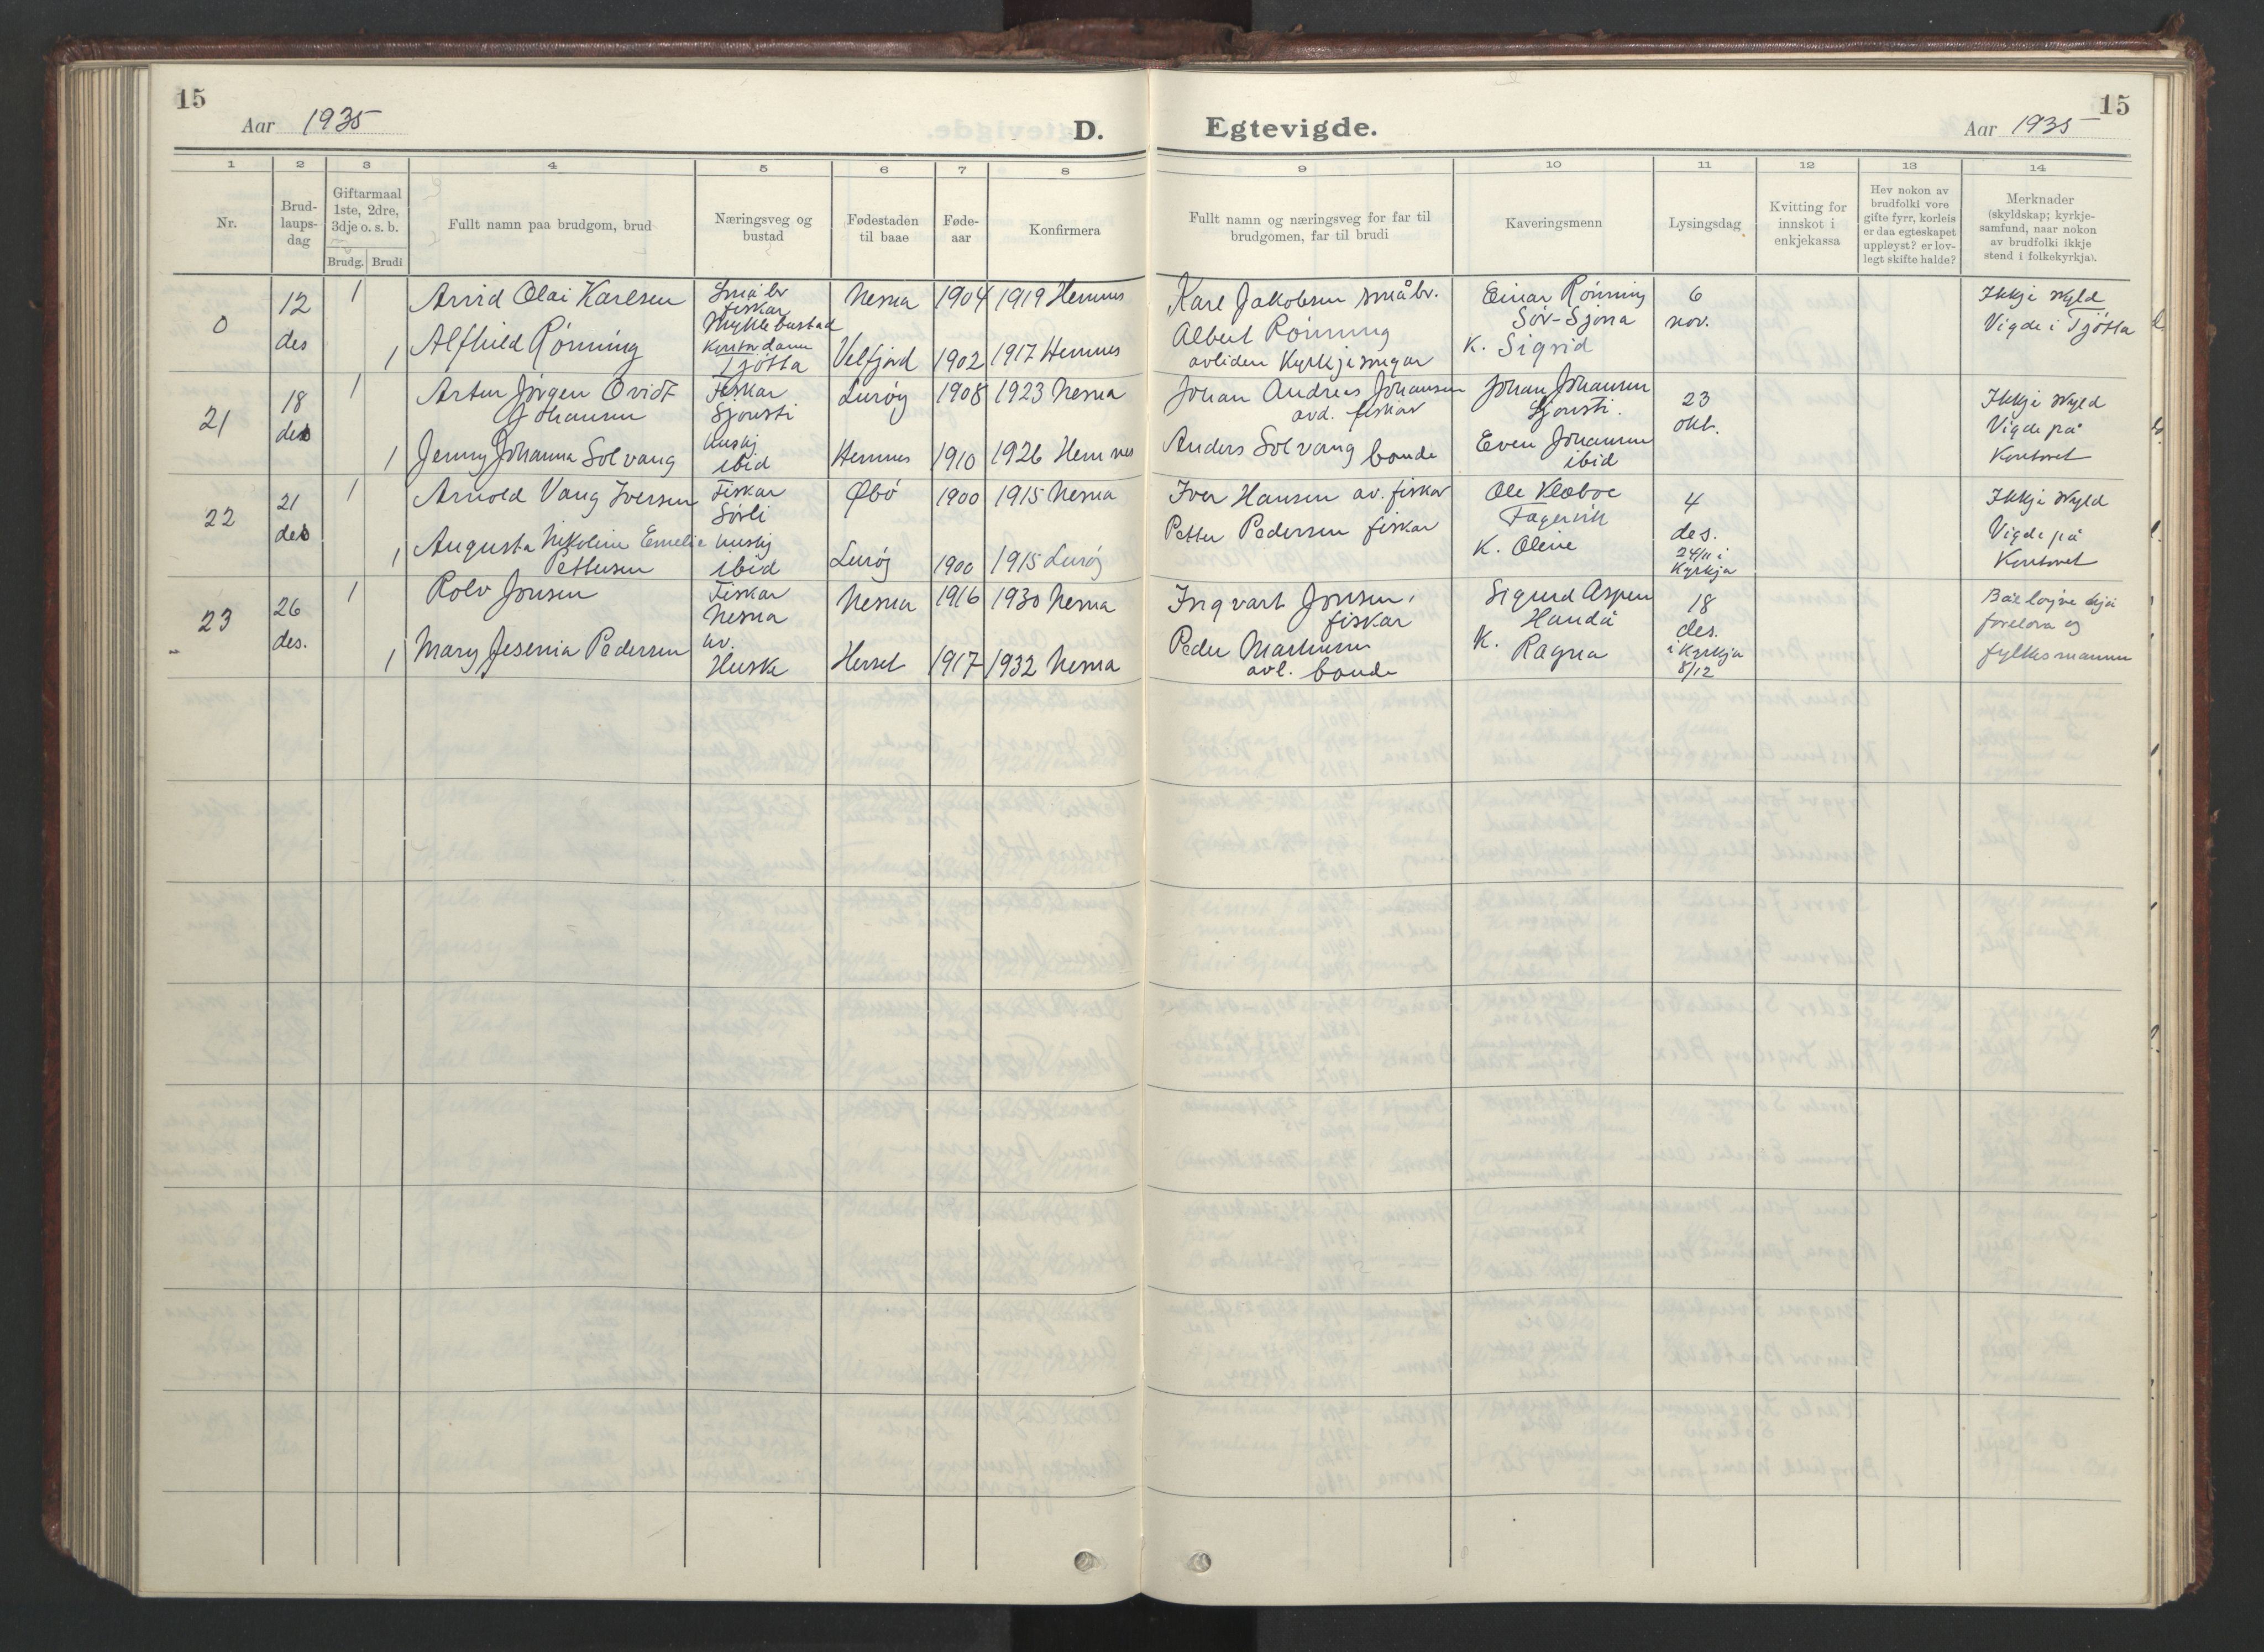 15
Aar 1935
D.
Egtevigde.
Aar 1935
15
1 2 3 4 5 6 7 8 9 10 11 12 13 14
Nr.
Brud-
laups-
dag
Giftarmaal
1ste, 2dre,
3dje o. s. b.
Brudg. Brudi
Fullt namn paa brudgom, brud
Næringsveg og
bustad
Fødestaden
til baae
Føde-
aar
Konfirmera
Fullt namn og næringsveg for far til
brudgomen, far til brudi
Kaveringsmenn
Lysingsdag
Kvitting for
innskot i
enkjekassa
Hev nokon av
brudfolki vore
gifte fyrr, korleis
er daa egteskapet
uppløyst? er lov-
legt skifte halde?
Merknader
(skyldskap; kyrkje-
samfund, naar nokon
av brudfolki ikkje
stend i folkekyrkja).
0
12
des
1
Arvid Olai Karlsen
Småbr
fiskar
Myklebustad
Nesna
1904
1919 Hemnes
Karl Jakobsen småbr.
Einar Rönning
Sör-Sjona
6
nov.
Ikkje skyld
Vigde i Tjötta
1
Alfhild Rönning
Kontordame
Tjötta
Velfjord
1902
1917 Hemnes
Albert Rönning
avliden Kyrkjesongar
K. Sigrid
21
18
des
1
Artur Jörgen Ovidt
Johansen
Fiskar
Sjonsti
Luröy
1908
1923 Nesna
Johan Andreas Johansen
avd. fiskar
Johan Johansen
Sjonsti.
23
okt.
Ikkje skyld
Vigde på
Kontoret
1
Jenny Johanna Solvang
hushj
ibid
Hemnes
1910
1926 Hemnes
Anders Solvang bonde
Even Johansen
ibid
22
21
des
1
Arnold Vang Iversen
Fiskar
Sörli
Øbö
1900
1915 Nesna
Iver Hansen av. fiskar
Ole Kleboe
Fagervik
4
des.
24/11 i
Kyrkja
Ikkje skyld
Vigde på
Kontoret
1
Augusta Nikoline Emelie
Pettersen
hushj
ibid
Luröy
1900
1915 Luröy
Petter Pedersen fiskar
K. Oline
23
26
des.
1
Rolv Jonsen
Fiskar
Nesna
Nesna
1916
1930 Nesna
Ingvart Jonsen,
fiskar
Sigurd Aspen
Handå
18
des.
i Kyrkja
8/12
foreldra og
fylkesmannen
1
Mary Jesenia Pedersen
hv.
Huske
Herset
1917
1932 Nesna
Peder
avl. bonde
K. Ragna